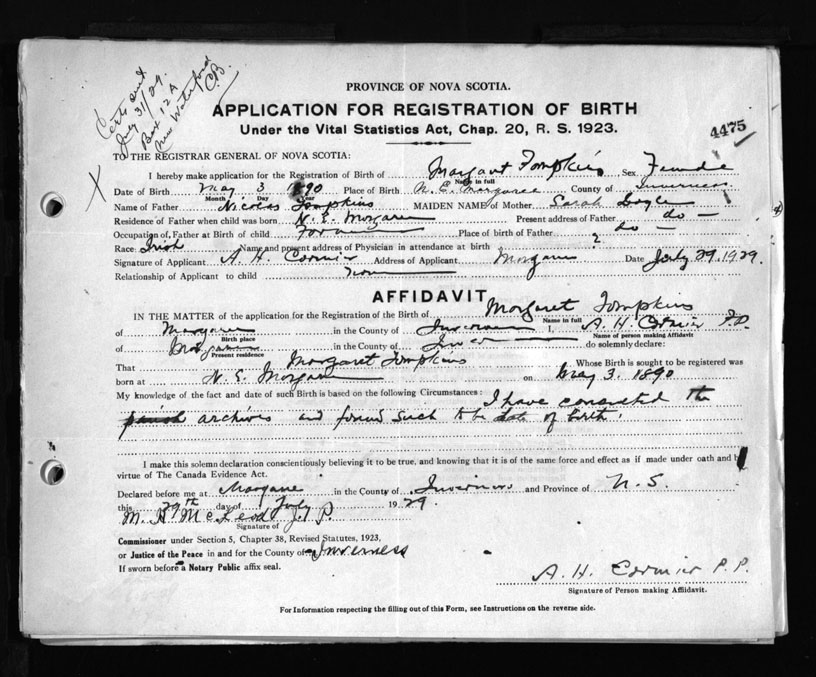 Certs sent
July 31/29
Box 12A
New Waterford
C.B.
PROVINCE OF NOVA SCOTIA.
APPLICATION FOR REGISTRATION OF BIRTH
Under the Vital Statistics Act, Chap. 20, R. S. 1923.
4475
X
TO THE REGISTRAR GENERAL OF NOVA SCOTIA:
I hereby make application for the Registration of Birth of Margaret Tompkins Sex Female
Name in full
Date of Birth May 3 1890 Place of Birth N. E. Margaree County of Inverness
Month Day Year
Name of Father Nicolas Tompkins MAIDEN NAME of Mother Sarah Doyle
Residence of Father when child was born N. E. Margaree Present address of Father do —
Occupation of Father at Birth of child Farmer Place of birth of Father do —
Race: Irish Name and present address of Physician in attendance at birth ?
Signature of Applicant A. H. Cormier Address of Applicant Margaree Date July 29, 1929.
Relationship of Applicant to child none
AFFIDAVIT
IN THE MATTER of the application for the Registration of the Birth of Margaret Tompkins
Name in full
of Margaree in the County of Inverness I, A. H. Cormier P.P.
Birth place Name of person making Affidavit
of Margaree in the County of Inver do solemnly declare:
Present residence
That Margaret Tompkins Whose Birth is sought to be registered was
born at N. E. Margaree on May 3. 1890
My knowledge of the fact and date of such Birth is based on the following Circumstances: I have consulted the
parish archives and found such to be date of birth.
I make this solemn declaration conscientiously believing it to be true, and knowing that it is of the same force and effect as if made under oath and by
virtue of The Canada Evidence Act.
Declared before me at Margaree in the County of Inverness and Province of N. S.
this 29th day of July 1929.
M. H. McLeod J. P.
Signature of
Commissioner under Section 5, Chapter 38, Revised Statutes, 1923,
or Justice of the Peace in and for the County of Inverness
If sworn before a Notary Public affix seal.
A. H. Cormier P. P.
Signature of Person making Affidavit.
For Information respecting the filling out of this Form, see Instructions on the reverse side.